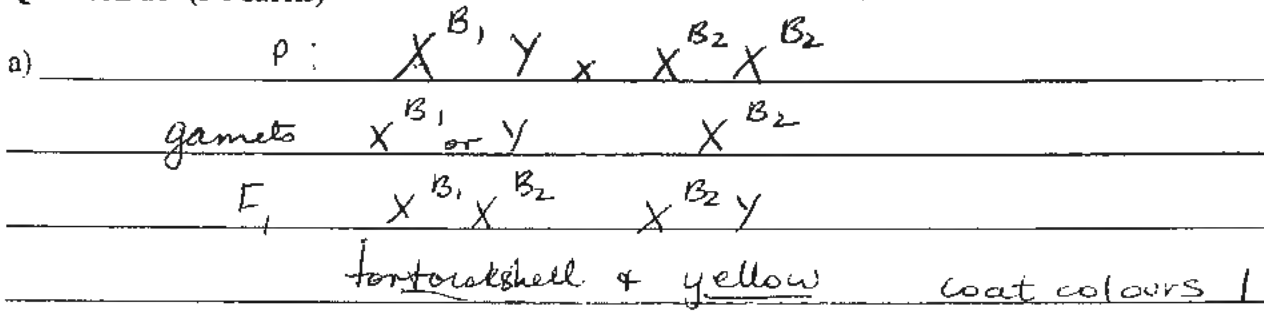 a) P : X^B1 Y x X^B2 X^B2
gamets X^B1 or Y X^B2
F1 X^B1 X^B2 X^B2 Y
tortoiseshell & yellow coat colours 1